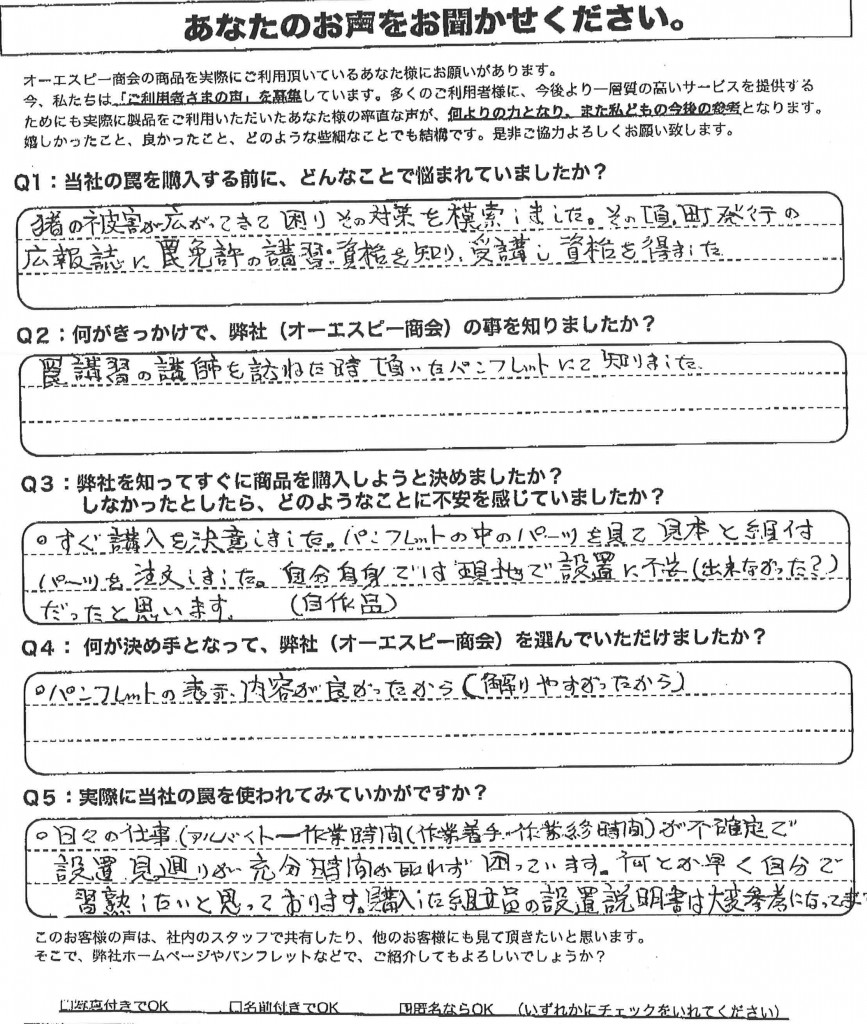 あなたのお声をお聞かせください。
オーエスピー商会の商品を実際にご利用頂いているあなた様にお願いがあります。
今、私たちは「ご利用者さまの声」を募集しています。多くのご利用者様に、今後より一層質の高いサービスを提供する
ためにも実際に製品をご利用いただいたあなた様の率直な声が、何よりの力となり、また私どもの今後の参考となります。
嬉しかったこと、良かったこと、どのような些細なことでも結構です。是非ご協力よろしくお願い致します。
Q1：当社の罠を購入する前に、どんなことで悩まれていましたか？
猪の被害が広がってきて困りその対策を模索しました。その頃、町発行の
広報誌に罠免許の講習・資格を知り、受講し資格を得ました
Q2：何がきっかけで、弊社（オーエスピー商会）の事を知りましたか？
罠講習の講師を訪ねた時頂いたパンフレットにて知りました
Q3：弊社を知ってすぐに商品を購入しようと決めましたか？
しなかったとしたら、どのようなことに不安を感じていましたか？
○すぐ講入を決意しました。パンフレットの中のパーツを見て見本と組付
パーツを注文しました。自分自身では現地で設置に不安(出来なかった?)
だったと思います。（自作品）
Q4：何が決め手となって、弊社（オーエスピー商会）を選んでいただけましたか？
○パンフレットの表示、内容が良かったから（解りやすかったから）
Q5：実際に当社の罠を使われてみていかがですか？
○日々の仕事(アルバイトー作業時間(作業着手・作業終時間)が不確定で
設置見廻りが充分時間が取れず困っています。何とか早く自分で
習熟したいと思っております。購入した組立員の設置説明書は大変参考になってます
このお客様の声は、社内のスタッフで共有したり、他のお客様にも見て頂きたいと思います。
そこで、弊社ホームページやパンフレットなどで、ご紹介してもよろしいでしょうか？
□写真付きでOK　□名前付きでOK　☑匿名ならOK　（いずれかにチェックをいれてください）